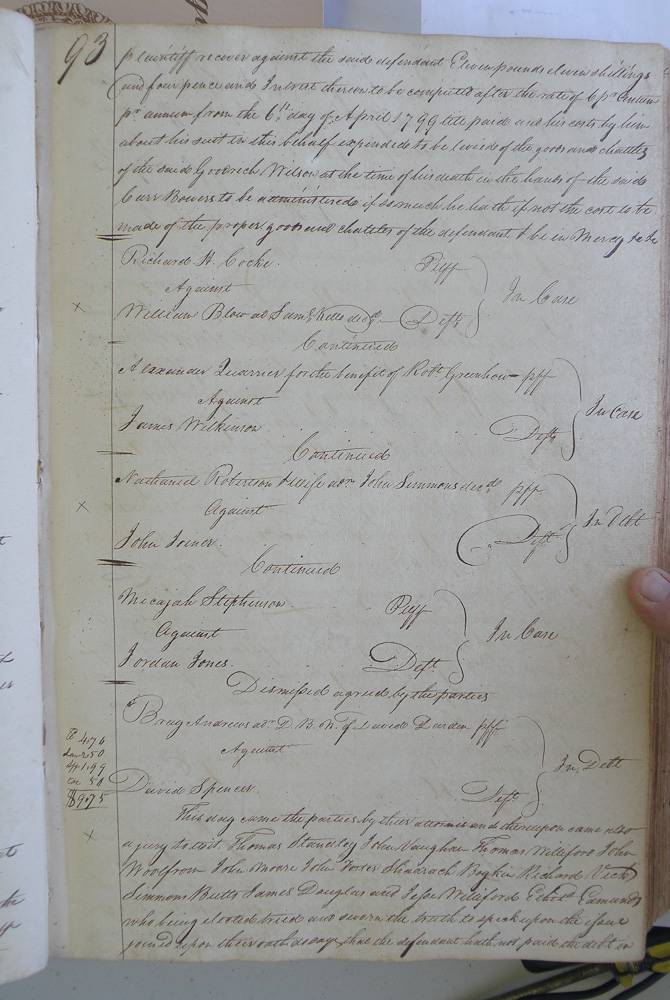 93
plaintiff recover against the said defendant Eleven pounds eleven shillings
and four pence and Interest thereon to be computed after the rate of 6 pr Centum
pr annum from the 6th day of April 1799 till paid and his costs by him
about his suit in this behalf expended to be levied of the goods and chattles
of the said Goodrich Wilson at the time of his death in the hands of the said
Carr Bowers to be administered if so much he hath if not the cost to be
made of the proper goods and chattles of the defendant & be in Mercy &c &c
Richard H. Cocke. Plff
Against
In Case
William Blow ad Saml Kello decd. Deft
Continued
Alexander Quarrier for the benefit of Robt Greenhow plf
Against
In Case
James Wilkinson Deft
Continued
Nathaniel Robertson & wife adm John Simmons decd plf
Against
In Debt
John Joiner. Deft
Continued
Micajah Stephenson. Plff
Against
In Case
Jordan Jones. Deft
Dismissed agreed by the parties
Bray Andrews adr D. B. N. of David Darden plff
Against
In Debt
David Spencer. Deft
4.76
2.50
1.99
50
$9.75
This day came the parties by their attornies and thereupon came also
a jury to wit Thomas Standley John Vaughan Thomas Williford John
Woolfrom John Moore John Fores Shadrach Boykin Richard Vick
Simmons Butts James Douglas and Jesse Williford Ethd. Edmunds
who being elected tried and sworn the truth to speak upon the issue
joined upon their oath do say, that the defendant hath not paid the debt in